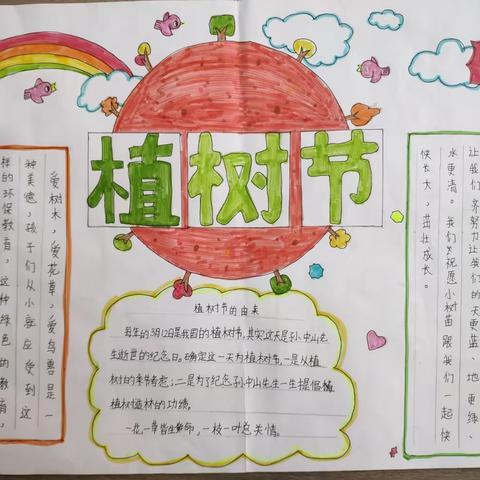 植树节
爱树木，爱花草，爱鸟兽是一
种美德，孩子们从小应受到这
样的环保教育，这种绿色的教育，
植树节的由来
每年的3月12日是我国的植树节,其实这天是孙中山先
生逝世的纪念日。确定这一天为植树节,一是从植
树的季节考虑;二是为了纪念孙中山先生一生提倡植
植树造林的功绩。
一花一草皆生命，一枝一叶总关情。
让我们一齐努力让我们的天更蓝、地更绿、
水更清。我们祝愿小树苗跟我们一起快
快长大，茁壮成长。